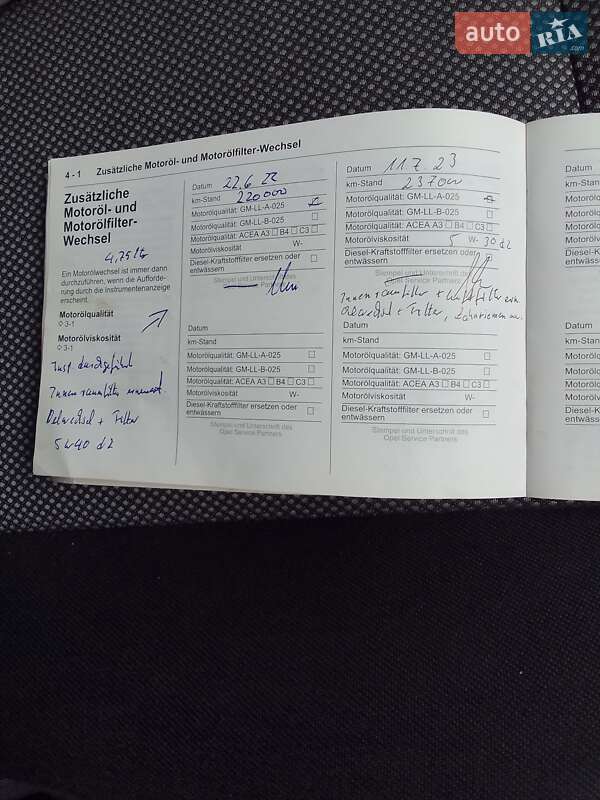 auto RIA.com
4 - 1 Zusätzliche Motoröl- und Motorölfilter-Wechsel
Zusätzliche
Motoröl- und
Motorölfilter-
Wechsel
4,75 ltr
Ein Motorölwechsel ist immer dann
durchzuführen, wenn die Aufforde-
rung durch die Instrumentenanzeige
erscheint.
Motorölqualität
3-1
Motorölviskosität
3-1
Insp. durchgeführt
Innenraumfilter erneuert.
Oelwechsel + Filter
5W40 d2
Datum 22.6 22
km-Stand 220000
Motorölqualität: GM-LL-A-025
Motorölqualität: GM-LL-B-025
Motorölqualität: ACEA A3 B4 C3
Motorölviskosität W-
Diesel-Kraftstofffilter ersetzen oder
entwässern
Stempel und Unterschrift des
Opel Service Partners
Datum
km-Stand
Motorölqualität: GM-LL-A-025
Motorölqualität: GM-LL-B-025
Motorölqualität: ACEA A3 B4 C3
Motorölviskosität W-
Diesel-Kraftstofffilter ersetzen oder
entwässern
Stempel und Unterschrift des
Opel Service Partners
Datum 11.7 23
km-Stand 237000
Motorölqualität: GM-LL-A-025
Motorölqualität: GM-LL-B-025
Motorölqualität: ACEA A3 B4 C3
Motorölviskosität 5 W- 30 d2
Diesel-Kraftstofffilter ersetzen oder
entwässern
Stempel und Unterschrift des
Opel Service Partners
Innenraumfilter + Luftfilter ern.
Oelwechsel + Filter, Zahnriemen
Datum
km-Stand
Motorölqualität: GM-LL-A-025
Motorölqualität: GM-LL-B-025
Motorölqualität: ACEA A3 B4 C3
Motorölviskosität W-
Diesel-Kraftstofffilter ersetzen oder
entwässern
Stempel und Unterschrift des
Opel Service Partners